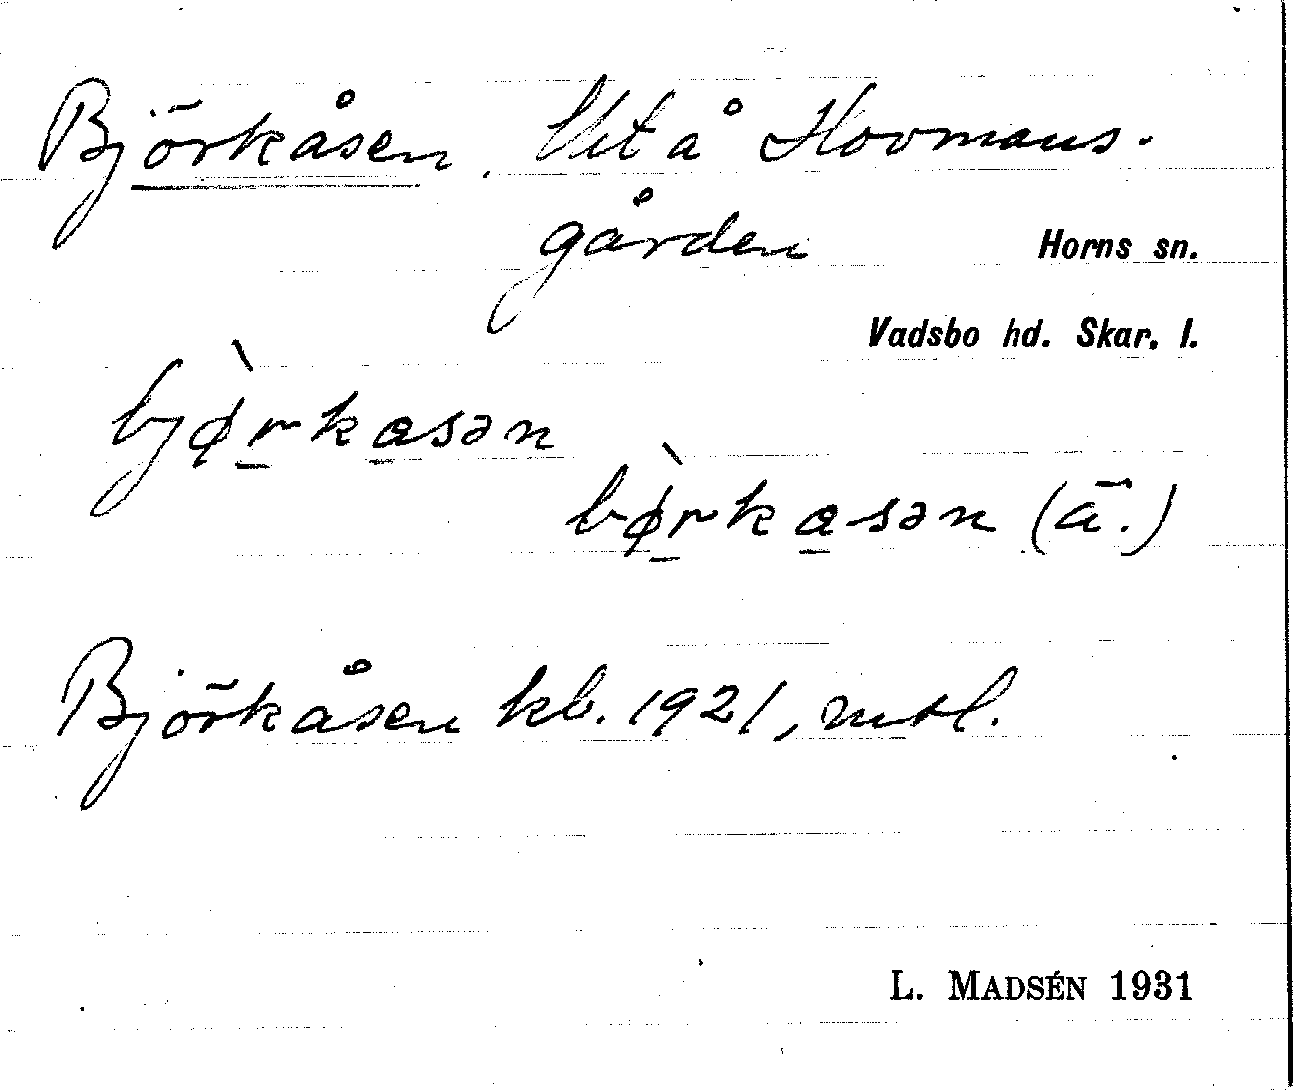 Björkåsen. Utå Hovmans-
gården
Horns sn.
Vadsbo hd. Skar. l.
bjø̀rkasən
bø̀rkasən (ä.)
Björkåsen kb. 1921, mtl.
L. MADSÉN 1931